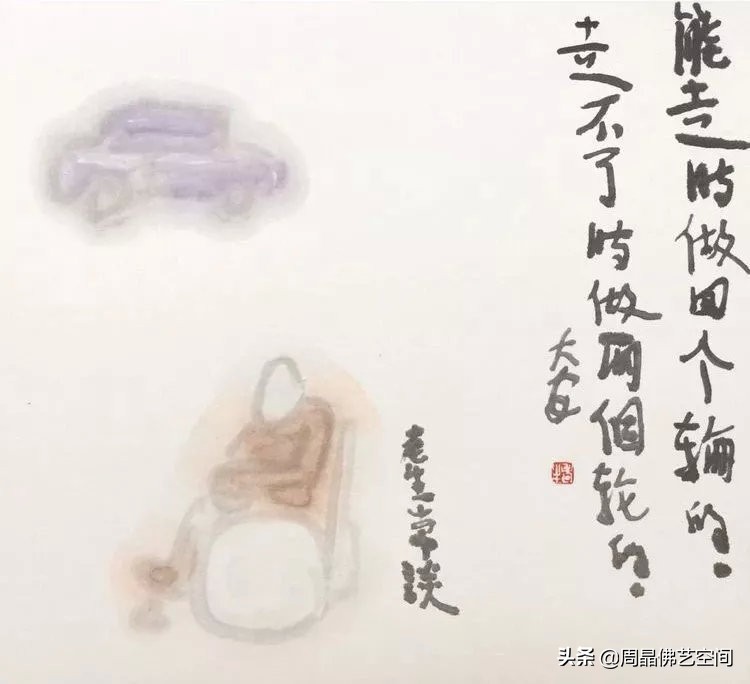 能走时做四个輪的.
走不了时做两個轮的.
老生常談
头条 @周晶佛艺空间